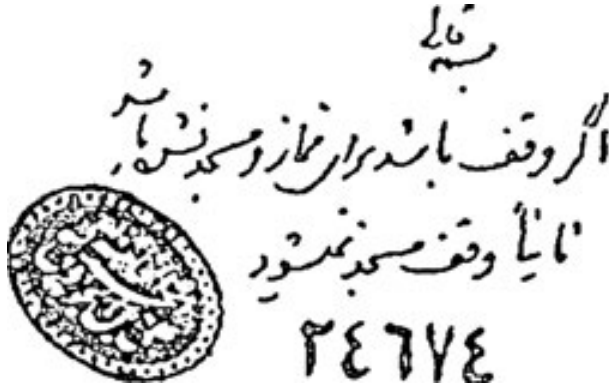 بسمه تعالی
اگر وقف باشد برای نماز و مسجد نشده باشد
ثانیاً وقف مسجد نمیشود
٢٤٦٧٤